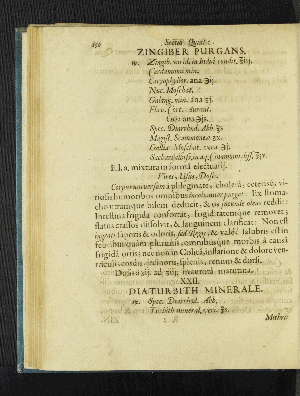 Sectio Quinta.
ZINGIBER PURGANS.
℞. Zingib. viridis in India condit. ℥iij.
Cardamomi min.
Caryophyllor. ana ʒij.
Nuc. Moschat.
Galang. min. ana ʒj.
Flav. Cort. Aurant.
Citri ana ʒjs.
Spec. Diarrhod. Abb. ʒs.
Magist. Scammoneæ
Galliæ Moschat.
Sacchari
F. l. a. mixtura in forma electuarij.
Vires, Usus, Dosis.
Corpus universum à phlegmate, cholera, ceterisq; vi-
tiosis humoribus omnibus purgat. Ex stoma-
choque utramque bilem deducit, & os jucunde olens reddit:
Intestina frigida confortat, frigiditatemque removet;
flatus crassos dissolvit, & sanguinem clarificat: Non est
ingrati saporis & odoris, & valde salubris est in
febribus quàm plurimis, omnibusque morbis à causa
frigida ortis; nec non in Colica, inflatione & dolore ven-
triculi, cordis, pectoris, splenis, renum & dorsi.
Dosis à ʒij. ad ʒiij. in aurora matutina.
XXII.
DIATURBITH MINERALE.
℞. Spec. Diarrhod. Abb.
Turbith mineral. ʒs.